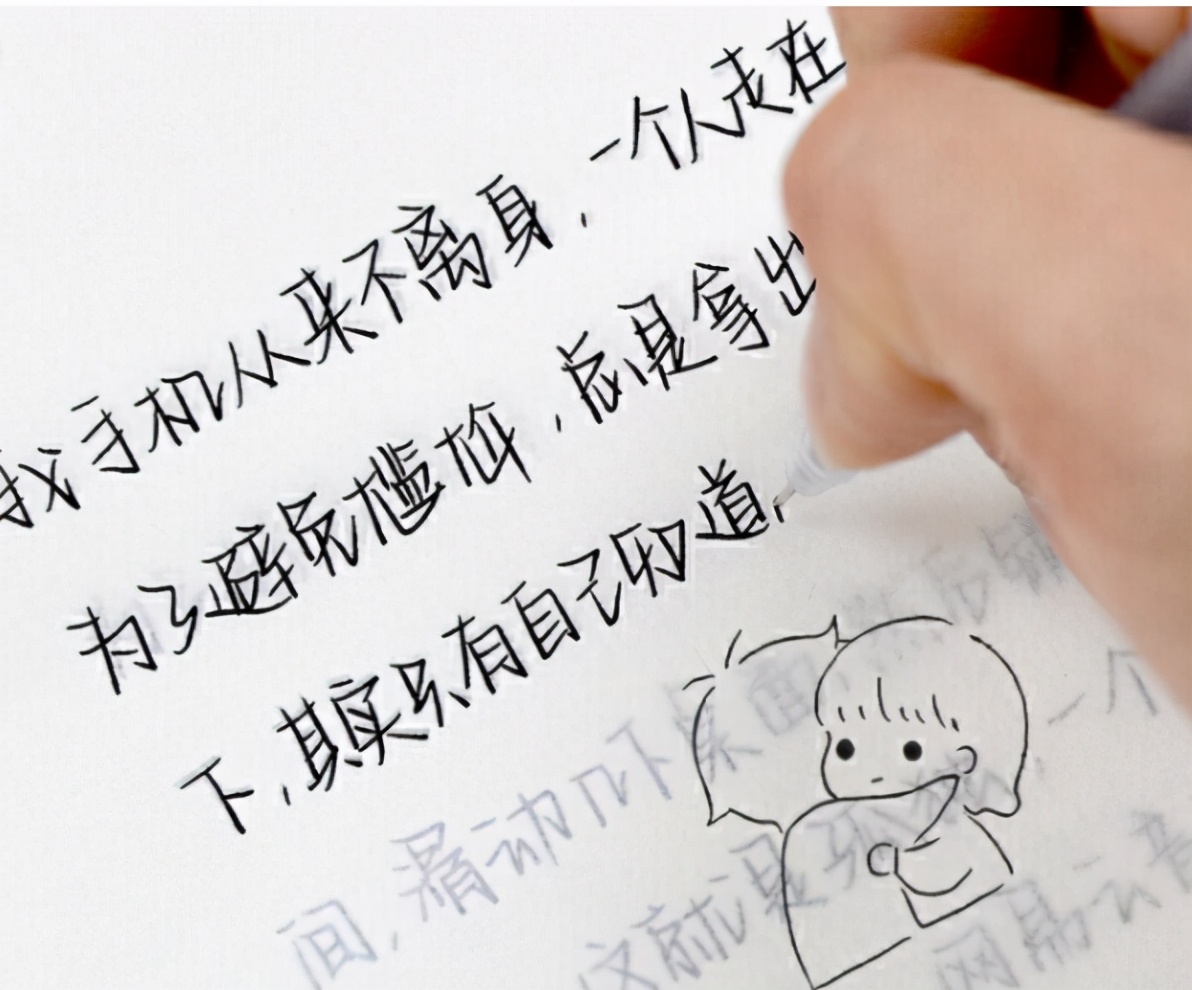 我手机从来不离身，一个人走在
为了避免尴尬，总是拿出
下，其实只有自己知道，
间，滑动几下桌面，然后锁
这就是孤独，一个
网易云音